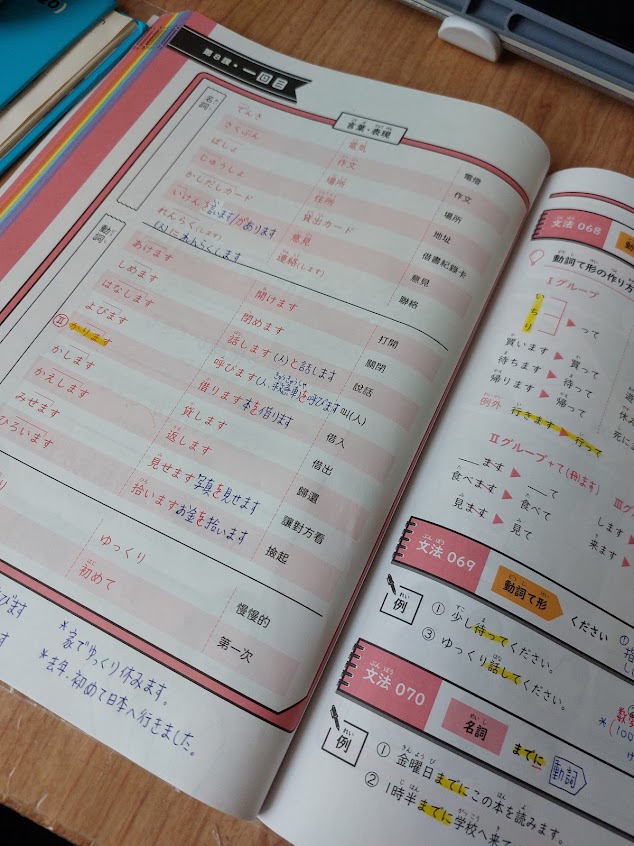 第8課・一回目
言葉・表現
名詞
でんき 電気 電燈
さくぶん 作文 作文
ばしょ 場所 場所
じゅうしょ 住所 地址
かしだしカード 貸出カード 借書紀錄卡
いけん を言います/があります 意見 意見
れんらく(します) 連絡(します) 聯絡
(人)にれんらくします
動詞
あけます 開けます 打開
しめます 閉めます 關閉
はなします 話します(人)と話します 說話
よびます 呼びます(人、救急車を呼びます 叫(人)
Ⅱ かります 借ります本を借ります 借入
かします 貸します 借出
かえします 返します 歸還
みせます 見せます写真を見せます 讓對方看
ひろいます 拾いますお金を拾います 撿起
ゆっくり 慢慢的
初めて 第一次
*家でゆっくり休みます。
*去年、初めて日本へ行きました。
文法 068
動詞て形の作り方
Ⅰグループ
い
ち
り
って
買います 買って
待ちます 待って
帰ります 帰って
例外 行きます 行って
Ⅱグループ+て(刪ます)
ます て
食べます 食べて
見ます 見て
します
来ます
文法 069
動詞て形 ください
例
① 少し待ってください。
③ ゆっくり話してください。
文法 070
名詞 までに 動詞
例
① 金曜日までにこの本を読みます。
② 1時半までに学校へ来て